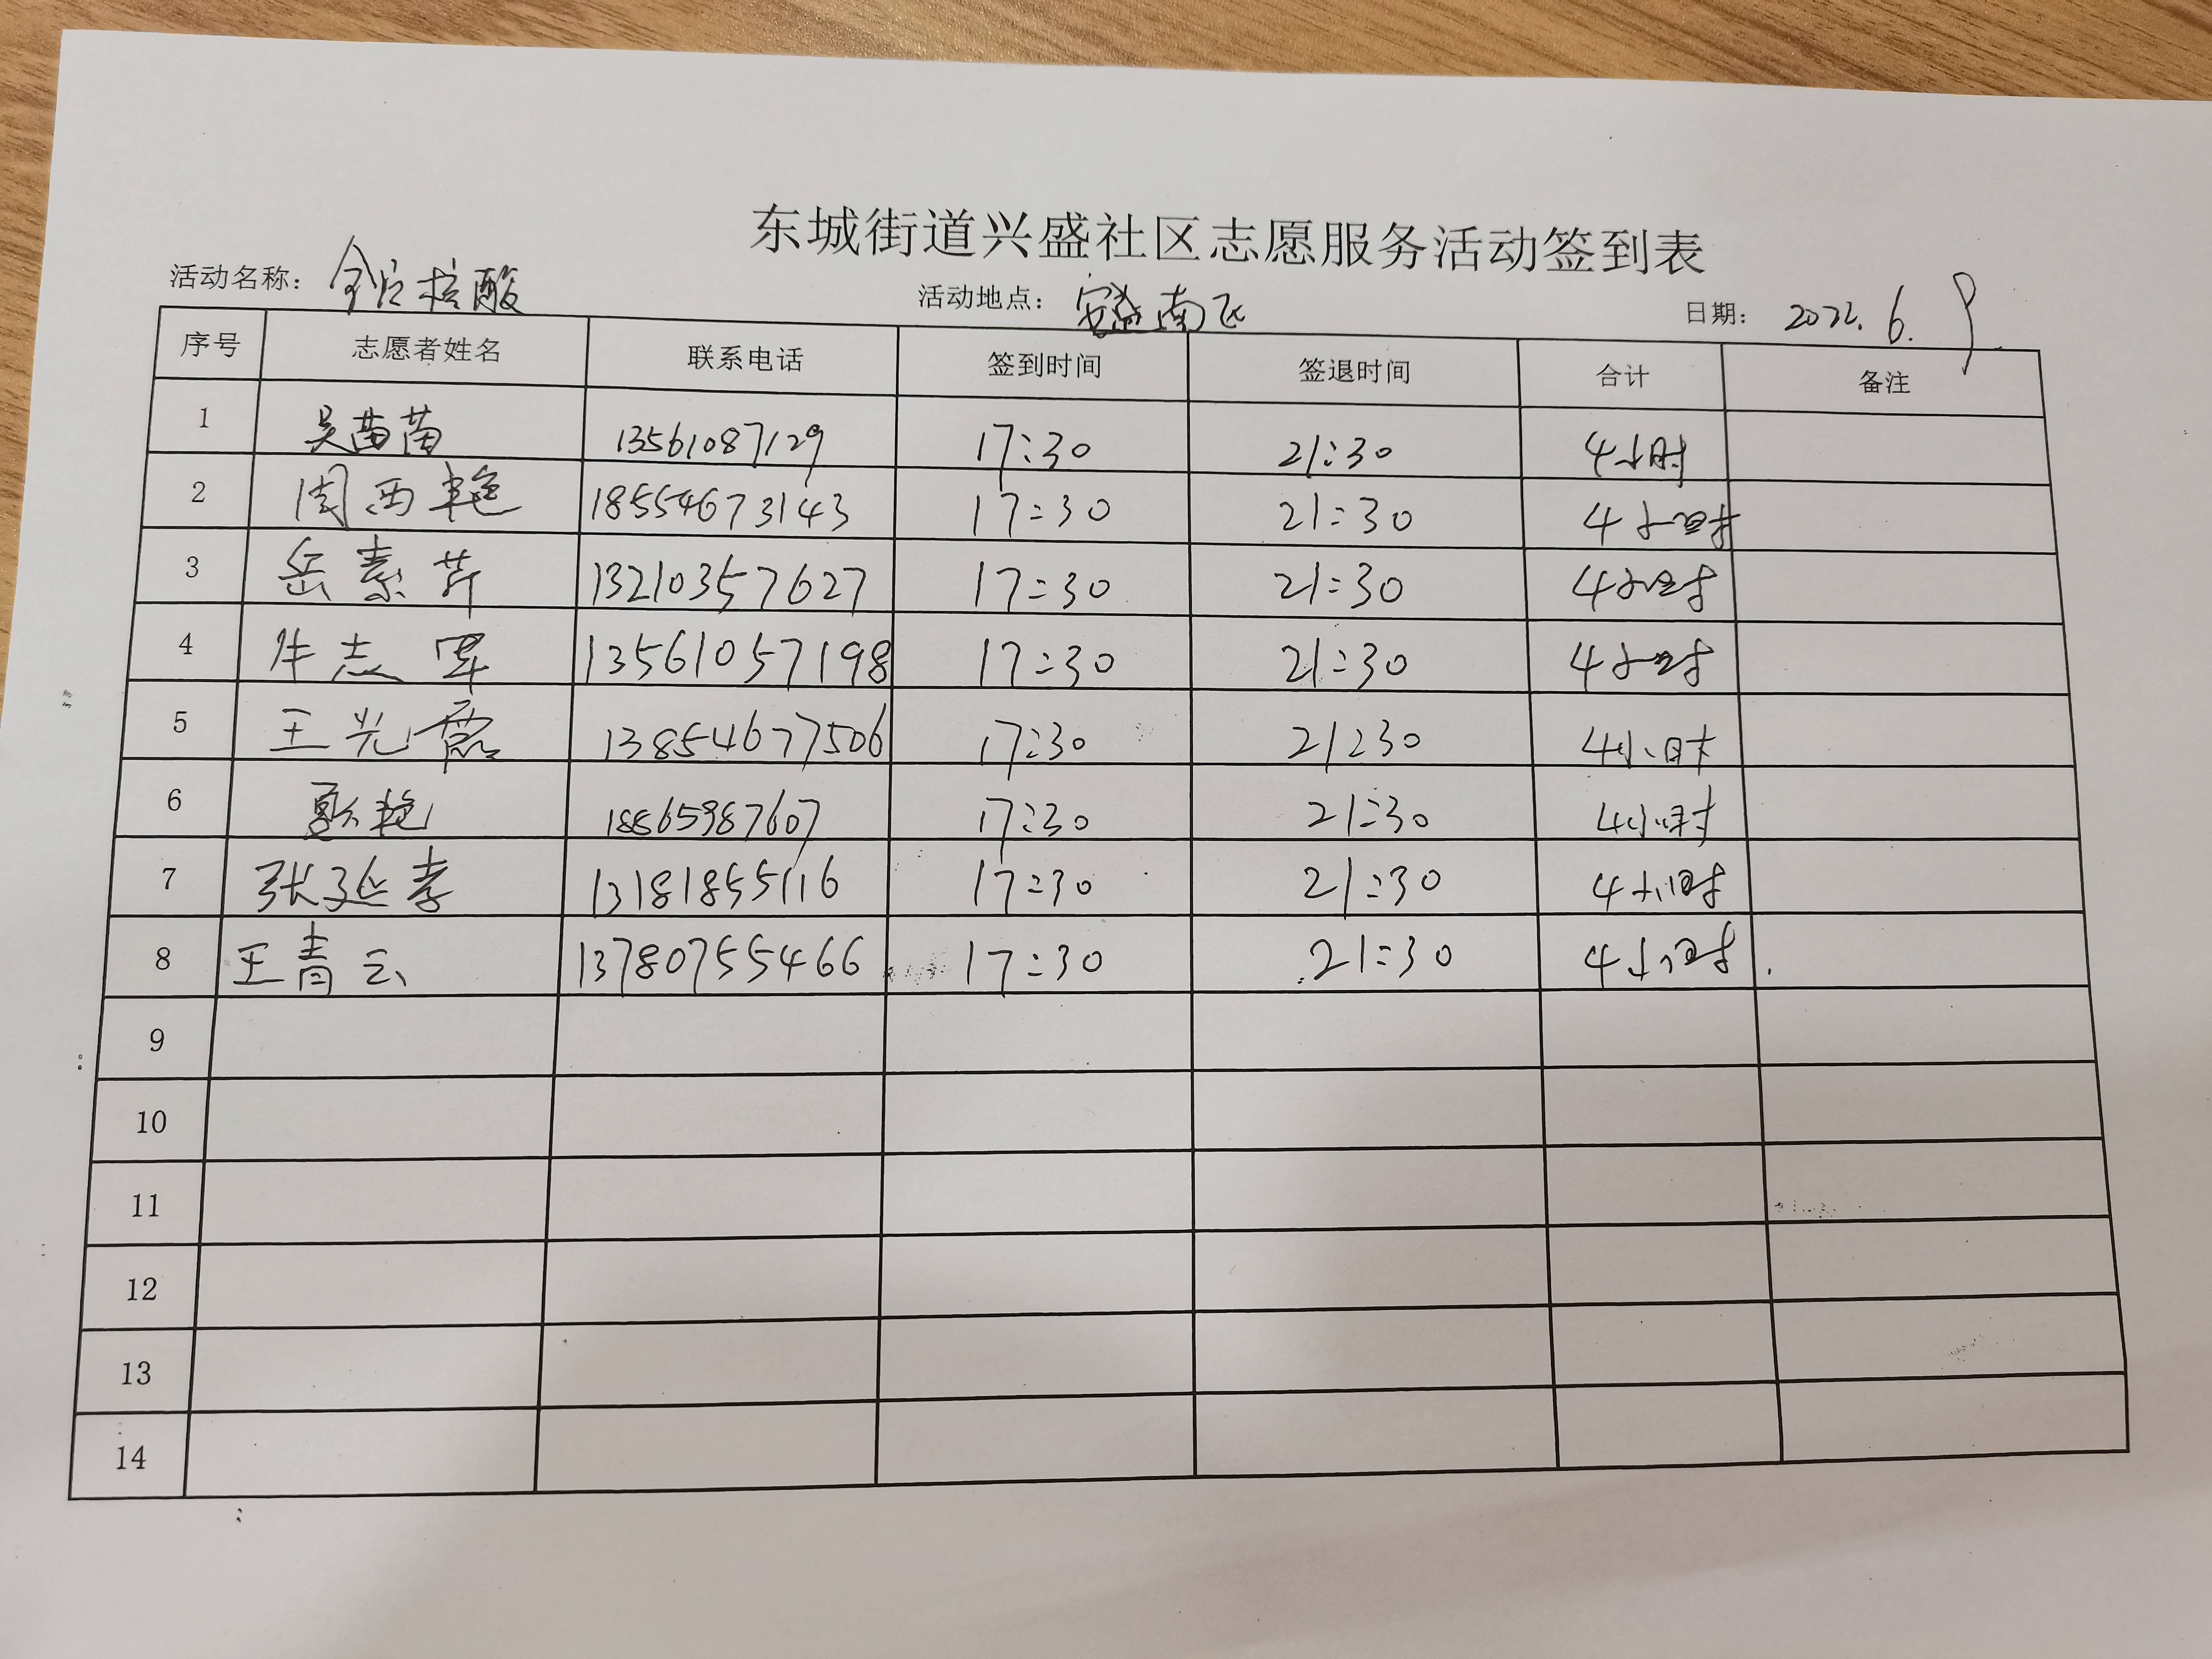 东城街道兴盛社区志愿服务活动签到表
活动名称: 全员核酸 活动地点: 安盛南区 日期: 2022.6.9.
序号 志愿者姓名 联系电话 签到时间 签退时间 合计 备注
1 吴苗苗 13561087129 17:30 21:30 4小时
2 周西艳 18554673143 17:30 21:30 4小时
3 岳素芹 13210357627 17:30 21:30 4小时
4 牛志军 13561057198 17:30 21:30 4小时
5 王光霞 13854677506 17:30 21:30 4小时
6 艳 18865987607 17:30 21:30 4小时
7 张延孝 13181855116 17:30 21:30 4小时
8 王青云 13780755466 17:30 21:30 4小时
9
10
11
12
13
14